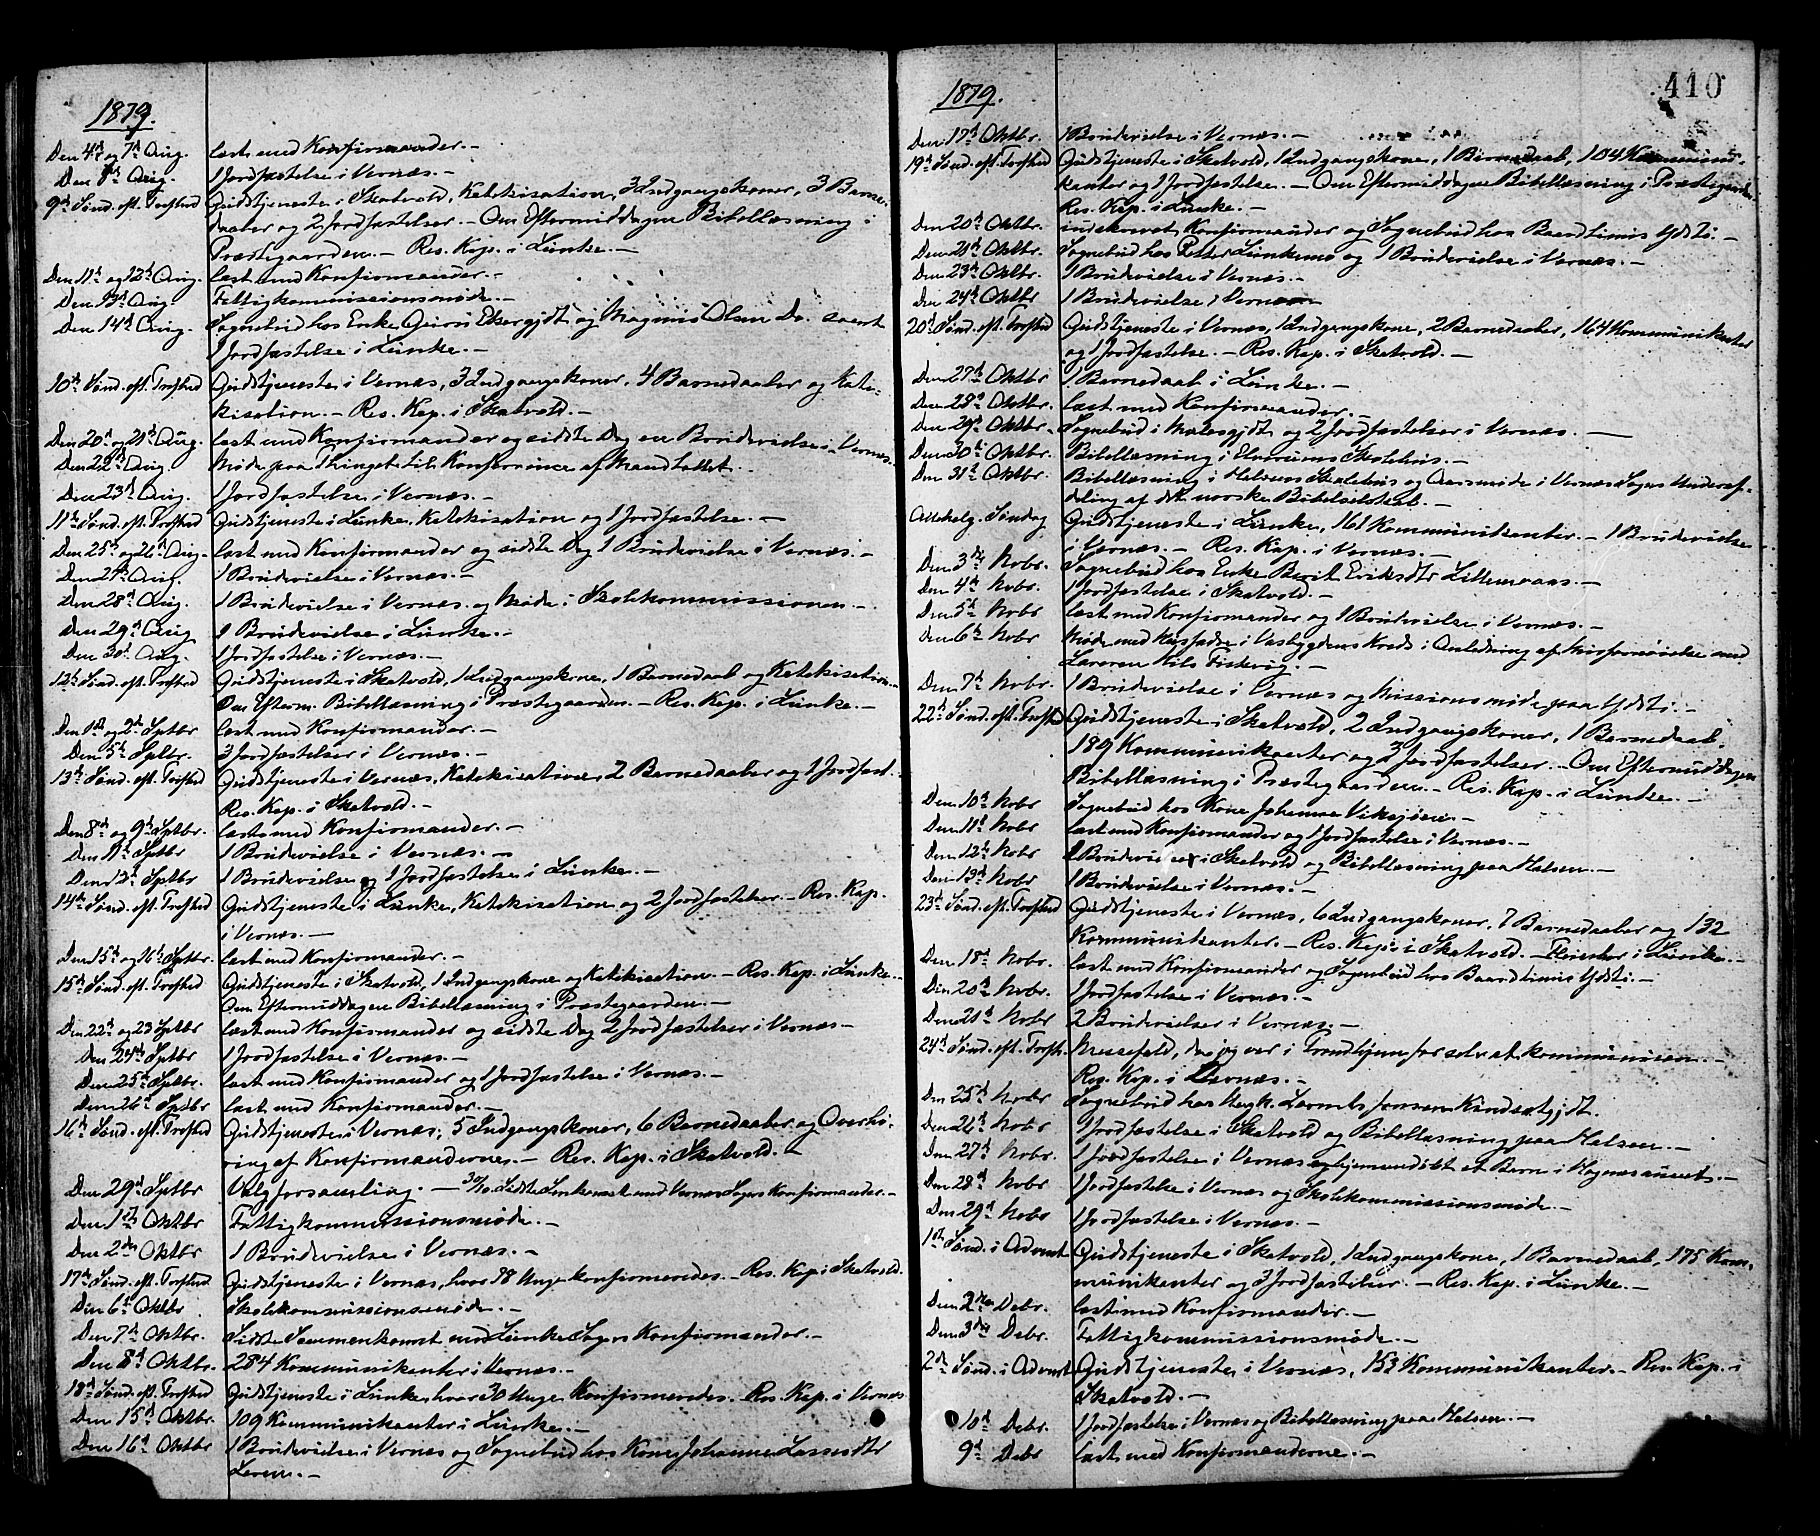 1879.
Den 4de og 7de Aug. læst med Konfirmander. —
Den 8de Aug. 1 Jordfæstelse i Vernæs. —
9de Sønd. eft. Trefhed Gudstjeneste i Skatvold, Katekisation, 3 Indgangskoner, 3 Barne-
daaber og 2 Jordfæstelser. — Om Eftermiddagen Bibellæsning i
Præstegaarden. — Res. Kap. i Lunke. —
Den 11te og 12te Aug. læst med Konfirmander. —
Den 13de Aug. Fattigkommissionsmøde. —
Den 14de Aug. Sognebud hos Enke Guru og Magnus Olsen Do. samt
1 Jordfæstelse i Lunke. —
10de Sønd. eft. Trefhed Gudstjeneste i Vernæs, 3 Indgangskoner, 4 Barnedaaber og Kate-
kisation. — Res. Kap. i Skatvold. —
Den 20de og 21de Aug. læst med Konfirmander og sidste Dag en Brudevielse i Vernæs.
Den 22de Aug. Møde paa Thinget til Konference af Mandtallet. —
Den 23de Aug. 1 Jordfæstelse i Vernæs. —
11te Sønd. eft. Trefhed Gudstjeneste i Lunke, Katekisation og 1 Jordfæstelse. —
Den 25de og 26de Aug. læst med Konfirmander og sidste Dag 1 Brudevielse i Vernæs. —
Den 27de Aug. 1 Brudevielse i Vernæs. —
Den 28de Aug. 1 Brudevielse i Vernæs og Møde i Skolekommissionen. —
Den 29de Aug 1 Brudevielse i Lunke. —
Den 30de Aug. 1 Jordfæstelse i Vernæs. —
12te Sønd. eft. Trefhed Gudstjeneste i Skatvold, 1 Indgangskone, 1 Barnedaab og Katekisation. —
Om Efterm. Bibellæsning i Præstegaarden. — Res. Kap. i Lunke. —
Den 1ste og 2den Septbr læst med Konfirmander. —
Den 5te Septbr. 3 Jordfæstelser i Vernæs. —
13de Sønd. eft. Trefhed Gudstjeneste i Vernæs, Katekisation, 2 Barnedaaber og 1 Jordfæst.
Res. Kap. i Skatvold. —
Den 8de og 9de Septbr. læst med Konfirmander. —
Den 11te Septbr 1 Brudevielse i Vernæs. —
Den 12te Septbr 1 Brudevielse og 1 Jordfæstelse i Lunke. —
14de Sønd. eft. Trefhed Gudstjeneste i Lunke, Katekisation og 2 Jordfæstelser. — Res. Kap.
i Vernæs. —
Den 15de og 16de Septbr. læst med Konfirmander. —
15de Sønd. eft. Trefhed Gudstjeneste i Skatvold, 1 Indgangskone og Katekisation. — Res. Kap. i Lunke. —
Om Eftermiddagen Bibellæsning i Præstegaarden. —
Den 22de og 23 Septbr læst med Konfirmander og sidste Dag 2 Jordfæstelser i Vernæs —
Den 24de Septbr 1 Jordfæstelse i Vernæs. —
Den 25de Septbr. læst med Konfirmander og 1 Jordfæstelse i Vernæs. —
Den 26de Septbr læst med Konfirmander. —
16de Sønd. eft. Trefhed Gudstjeneste i Vernæs, 5 Indgangskoner, 6 Barnedaaber og Overhø-
ring af Konfirmanderne. — Res. Kap. i Skatvold. —
Den 29de Septbr Valgforsamling. — 30/9. Sidste Samkomst med Vernæs Sogns Konfirmander. —
Den 1ste Oktbr Fattigkommissionsmøde. —
Den 2den Oktbr 1 Brudevielse i Vernæs. —
17de Sønd. eft. Trefhed Gudstjeneste i Vernæs, hvor 78 Unge konfirmeredes. — Res. Kap. i Skatvold.
Den 6te Oktbr Skolekommissionsmøde. —
Den 7de Oktbr. Sidste Sammenkomst med Lunke Sogns Konfirmander. —
Den 8de Oktbr. 284 Kommunikanter i Vernæs. —
18de Sønd. eft. Trefhed Gudstjeneste i Lunke, hvor 30 Unge Konfirmeredes. — Res. Kap. i Vernæs
Den 15de Oktbr. 109 Kommunikanter i Lunke. —
Den 16de Oktbr 1 Brudevielse i Vernæs og Sognebud hos Kone Johanna Lassesdtr
Leren. —
1879.
410
Den 17de Oktbr. 1 Brudevielse i Vernæs. —
19de Sønd. eft. Trefhed Gudstjeneste i Skatvold, 1 Indgangskone, 1 Barnedaab, 104 Kommuni-
kanter og 1 Jordfæstelse. — Om Eftermiddagen Bibellæsning i Præstegaarden.
Res. Kap. i Lunke. —
Den 20de Oktbr. indskrevet Konfirmander og Sognebud hos Baard Ydsti. —
Den 21de Oktbr. Sognebud hos Petter Lunkemo og 1 Brudevielse i Vernæs. —
Den 23de Oktbr. 1 Brudevielse i Vernæs. —
Den 24de Oktbr 1 Brudevielse i Vernæs —
20de Sønd. eft. Trefhed Gudstjeneste i Vernæs, 1 Indgangskone, 2 Barnedaaber, 164 Kommunikanter
og 1 Jordfæstelse. — Res. Kap. i Skatvold. —
Den 27de Oktbr 1 Barnedaab i Lunke. —
Den 28de Oktbr. læst med Konfirmander. —
Den 29de Oktbr. Sognebud i og 2 Jordfæstelser i Vernæs. —
Den 30te Oktbr. Bibellæsning i Elvrums Skolehus. —
Den 31te Oktbr. Bibellæsning i Halsens Skolehus og Aarsmøde i Vernæs Sogns Underaf-
deling af det norske Bibelselskab. —
Allehelg. Søndag Gudstjeneste i Lunke, 161 Kommunikanter. — 1 Brudevielse
i Vernæs. — Res. Kap. i Vernæs. —
Den 3die Novbr. Sognebud hos Enke Berit Eriksdtr Lillemoans. —
Den 4de Novbr. 1 Jordfæstelse i Skatvold. —
Den 5te Novbr læst med Konfirmander og 1 Brudevielse i Vernæs. —
Den 6te Novbr Møde med Husfædre i Vasbygdens Kreds i Anledning af Misfornøielse med
Læreren Nils Fiskvig. —
Den 7de Novbr. 1 Brudevielse i Vernæs og Missionsmøde paa Ydsti. —
22de Sønd. eft. Trefhed Gudstjeneste i Skatvold, 2 Indgangskoner, 1 Barnedaab,
189 Kommunikanter og 2 Jordfæstelser. — Om Eftermiddagen
Bibellæsning i Præstegaarden. — Res. Kap. i Lunke. —
Den 10de Novbr Sognebud hos Kone Johanna Viksjøen. —
Den 11te Novbr læst med Konfirmander og 1 Jordfæstelse i Vernæs. —
Den 12te Novbr 1 Brudevielse i Skatvold og Bibellæsning paa Halsen. —
Den 13de Novbr 1 Brudevielse i Vernæs. —
23de Sønd. eft. Trefhed Gudstjeneste i Vernæs, 6 Indgangskoner, 7 Barnedaaber og 132
Kommunikanter. — Res. Kap. i Skatvold. — i Lunke. —
Den 18de Novbr. læst med Konfirmander og Sognebud hos Baard Ydsti. —
Den 20de Novbr. 1 Jordfæstelse i Vernæs. —
Den 21de Novbr 2 Brudevielser i Vernæs. —
24de Sønd. eft. Trefh. Messefald, da jeg var i Trondhjem for selv at kommunicere. —
Res. Kap. i Vernæs. —
Den 25de Novbr Sognebud hos Ungk. Jonsen
Den 26de Novbr 1 Jordfæstelse i Skatvold og Bibellæsning paa Halsen. —
Den 27de Novbr. 1 Jordfæstelse i Vernæs og hjemmedøbt et Barn i —
Den 28de Novbr 1 Jordfæstelse i Vernæs og Skolekommissionsmøde. —
Den 29de Novbr 1 Jordfæstelse i Vernæs. —
1ste Sønd. i Advent Gudstjeneste i Skatvold, 1 Indgangskone, 1 Barnedaab, 175 Kom-
munikanter og 3 Jordfæstelser. — Res. Kap. i Lunke. —
Den 2den Debr. læst med Konfirmander. —
Den 3die Debr. Fattigkommissionsmøde. —
2den Sønd. i Advent Gudstjeneste i Vernæs, 153 Kommunikanter. — Res. Kap. i
Skatvold. —
10de Debr. 1 Jordfæstelse i Vernæs og Bibellæsning paa Halsen. —
9de Debr læst med Konfirmanderne. —